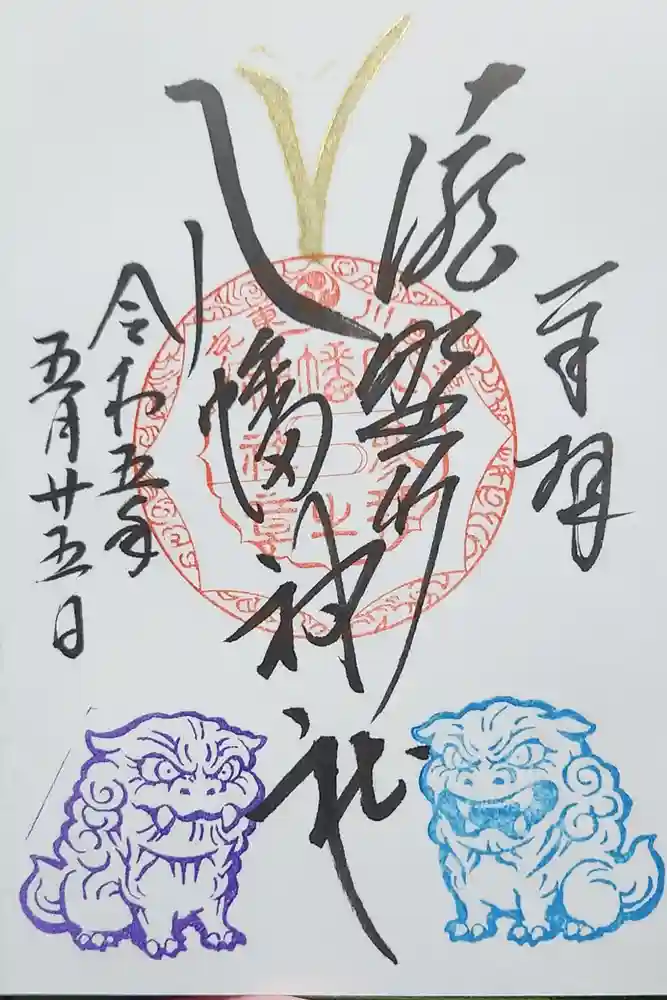 奉拝
瀧野川
八幡神社
令和五年
五月廿五日